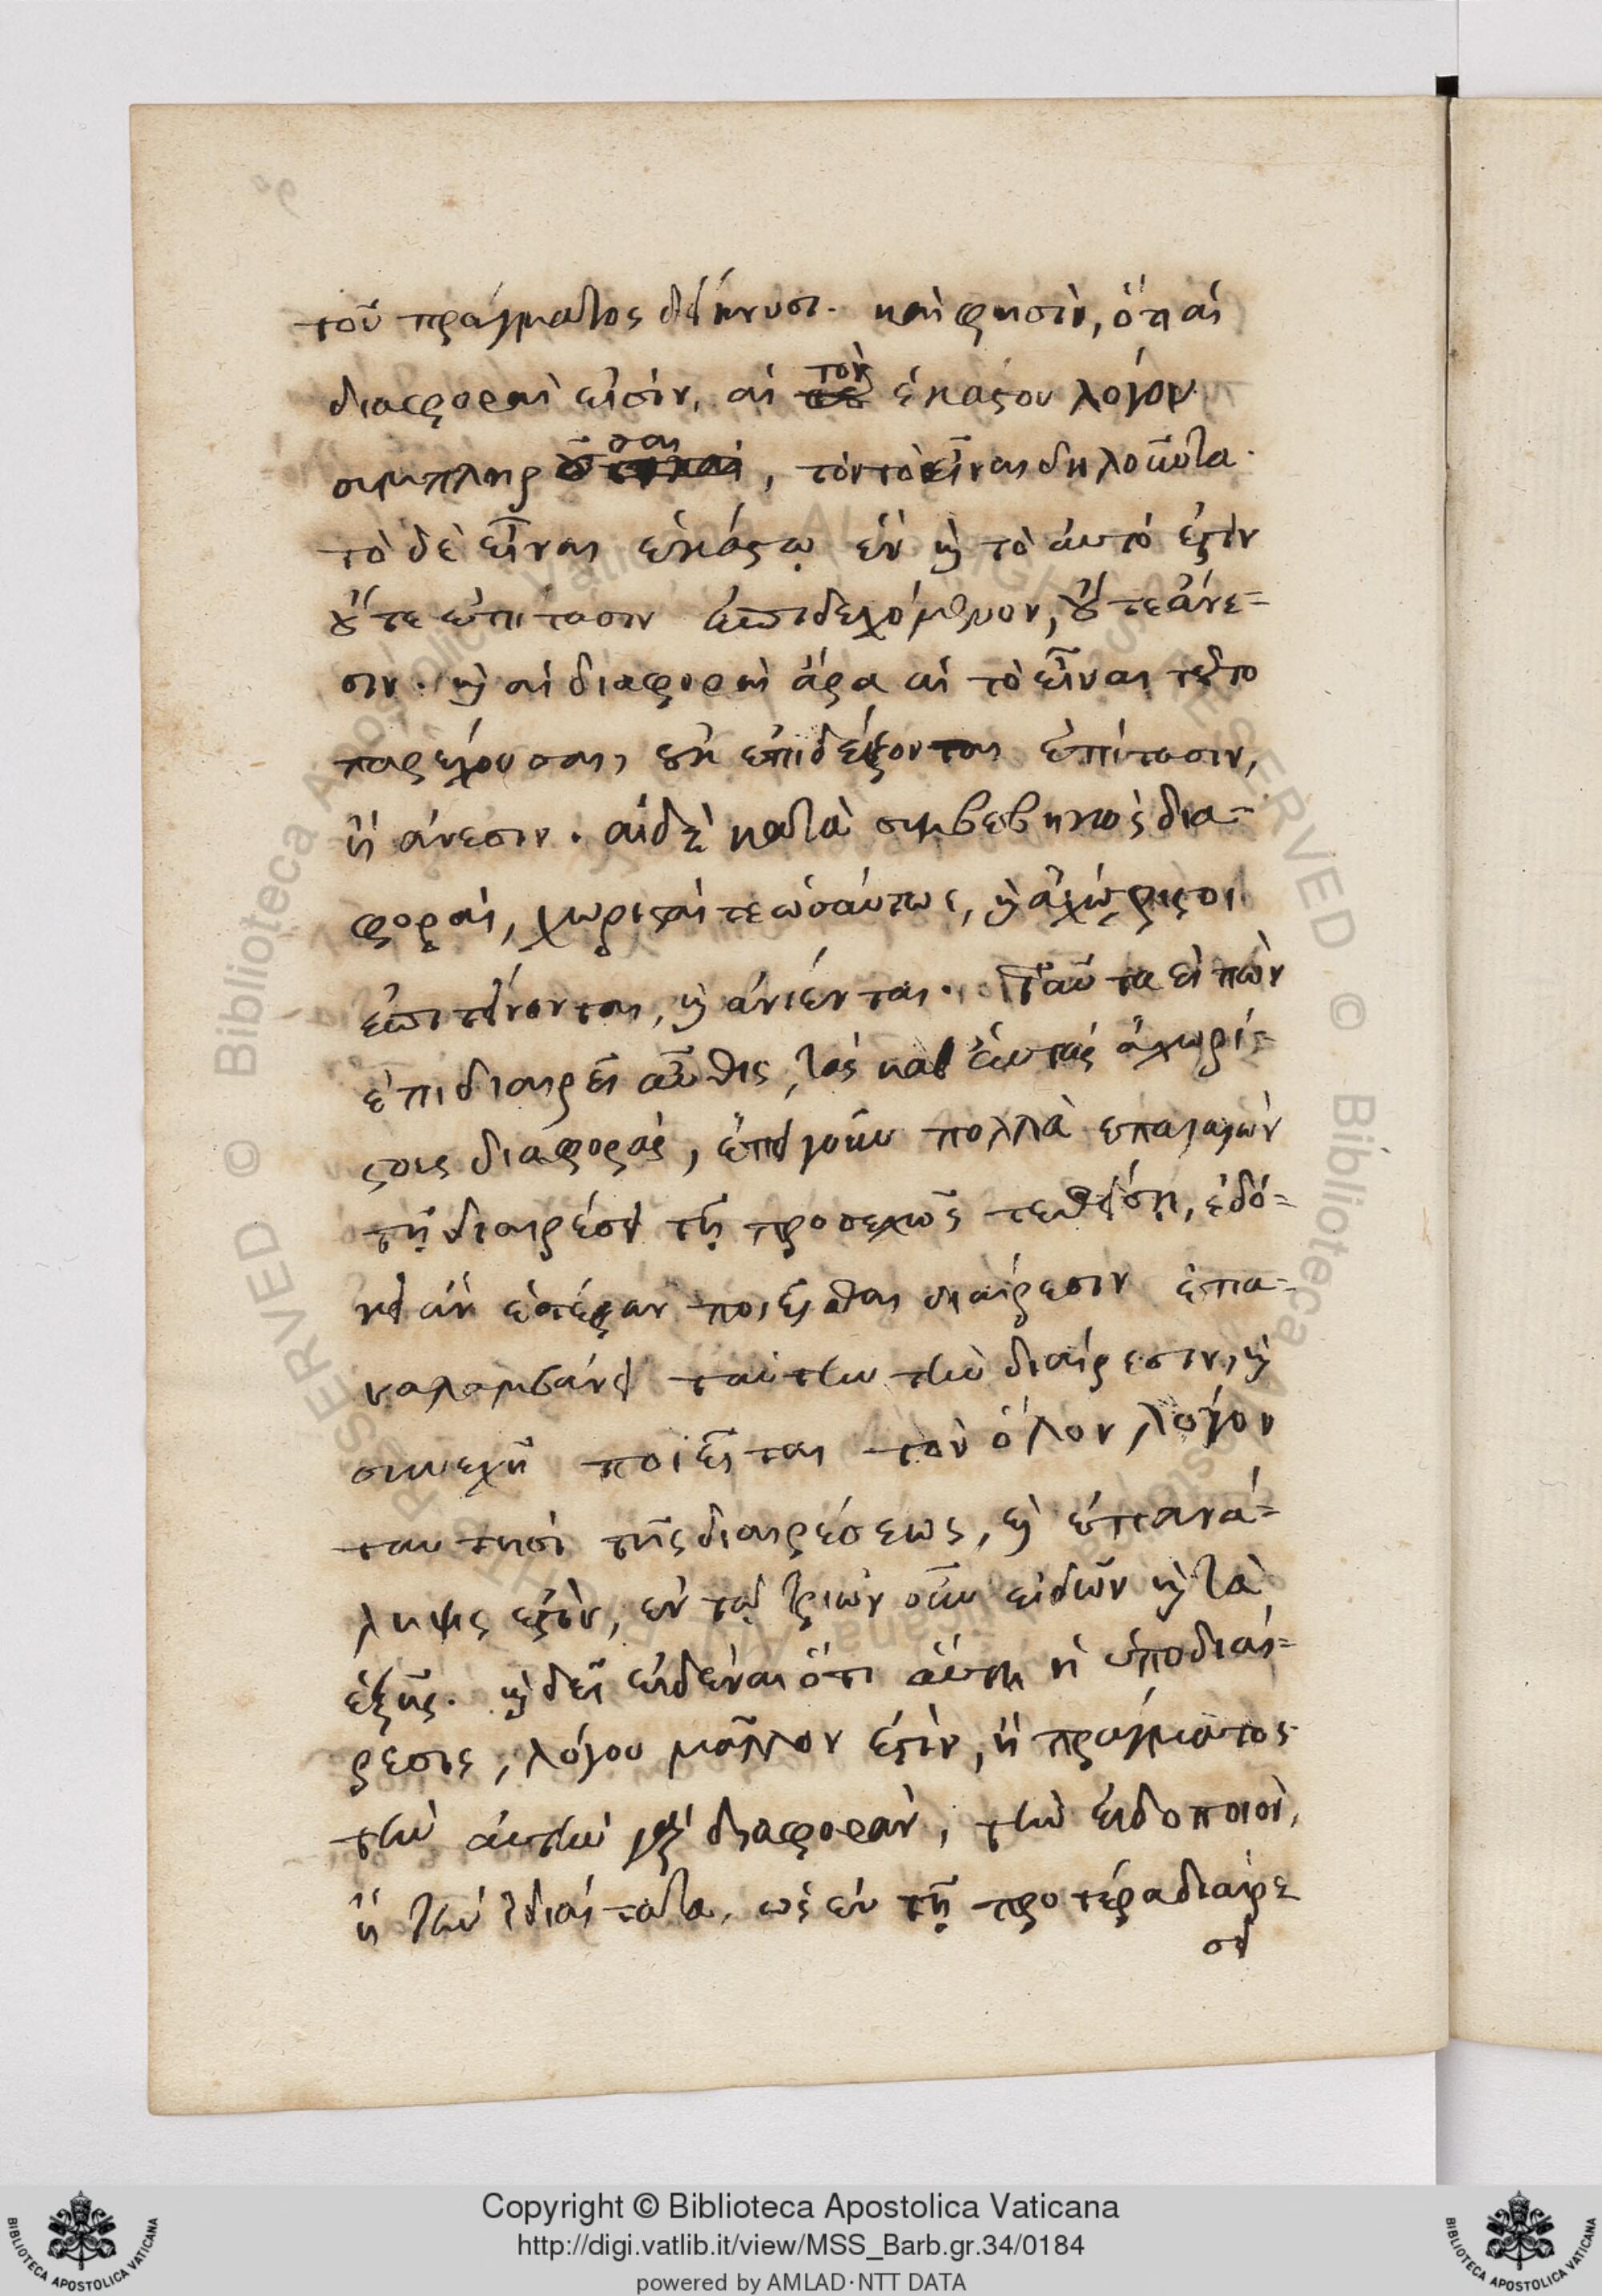 τοῦ πράγματος δείκνυσι. καὶ φησὶν, ὅτι αἱ
διαφοραὶ εἰσὶν, αἱ τὸν ἑκάστου λόγον
συμπληροῦσαι, τὸν τὸ εἶναι δηλοῦντα.
τὸ δὲ εἶναι ἑκάστῳ ἓν καὶ τὸ αὐτό ἐστιν
οὔτε ἐπίτασιν ἐπιδεχόμενον, οὔτε ἄνε-
σιν. καὶ αἱ διαφοραὶ ἄρα αἱ τὸ εἶναι τοῦτο
παρέχουσαι, οὐκ ἐπιδέξονται ἐπίτασιν,
ἢ ἄνεσιν. αἱ δὲ κατὰ συμβεβηκὸς δια-
φοραὶ, χωρισταί τε ὡσαύτως, καὶ ἀχώριστοι
ἐπιτείνονται, καὶ ἀνιένται. Ταῦτα εἰπὼν
ἐπιδιαιρεῖ αὖθις, τὰς καθ' ἑαυτὰς ἀχωρί-
στους διαφορὰς, ἐπεὶ γοῦν πολλὰ ἐπαγαγὼν
τῇ διαιρέσει τῇ προσεχῶς τεθείσῃ, ἐδό-
κει ἂν ἑτέραν ποιεῖσθαι διαίρεσιν ἐπα-
ναλαμβάνει ταύτην τὴν διαίρεσιν, καὶ
συνεχῆ ποιεῖται τὸν ὅλον λόγον
ταυτησὶ τῆς διαιρέσεως, καὶ ἐπανά-
ληψις ἐστὶν, ἐν τῷ τριῶν οὖν εἰδῶν καὶ τὰ
ἑξῆς. καὶ δεῖ εἰδέναι ὅτι αὕτη ἡ ὑποδιαί-
ρεσις, λόγου μᾶλλον ἐστὶν, ἢ πράγματος
τὴν αὐτὴν γὰρ διαφορὰν, τὴν εἰδοποιὸν,
ἢ τὴν ἰδιαίτατα, ὡς ἐν τῇ προτέρα διαιρέ
σει
Copyright © Biblioteca Apostolica Vaticana
http://digi.vatlib.it/view/MSS_Barb.gr.34/0184
powered by AMLAD·NTT DATA